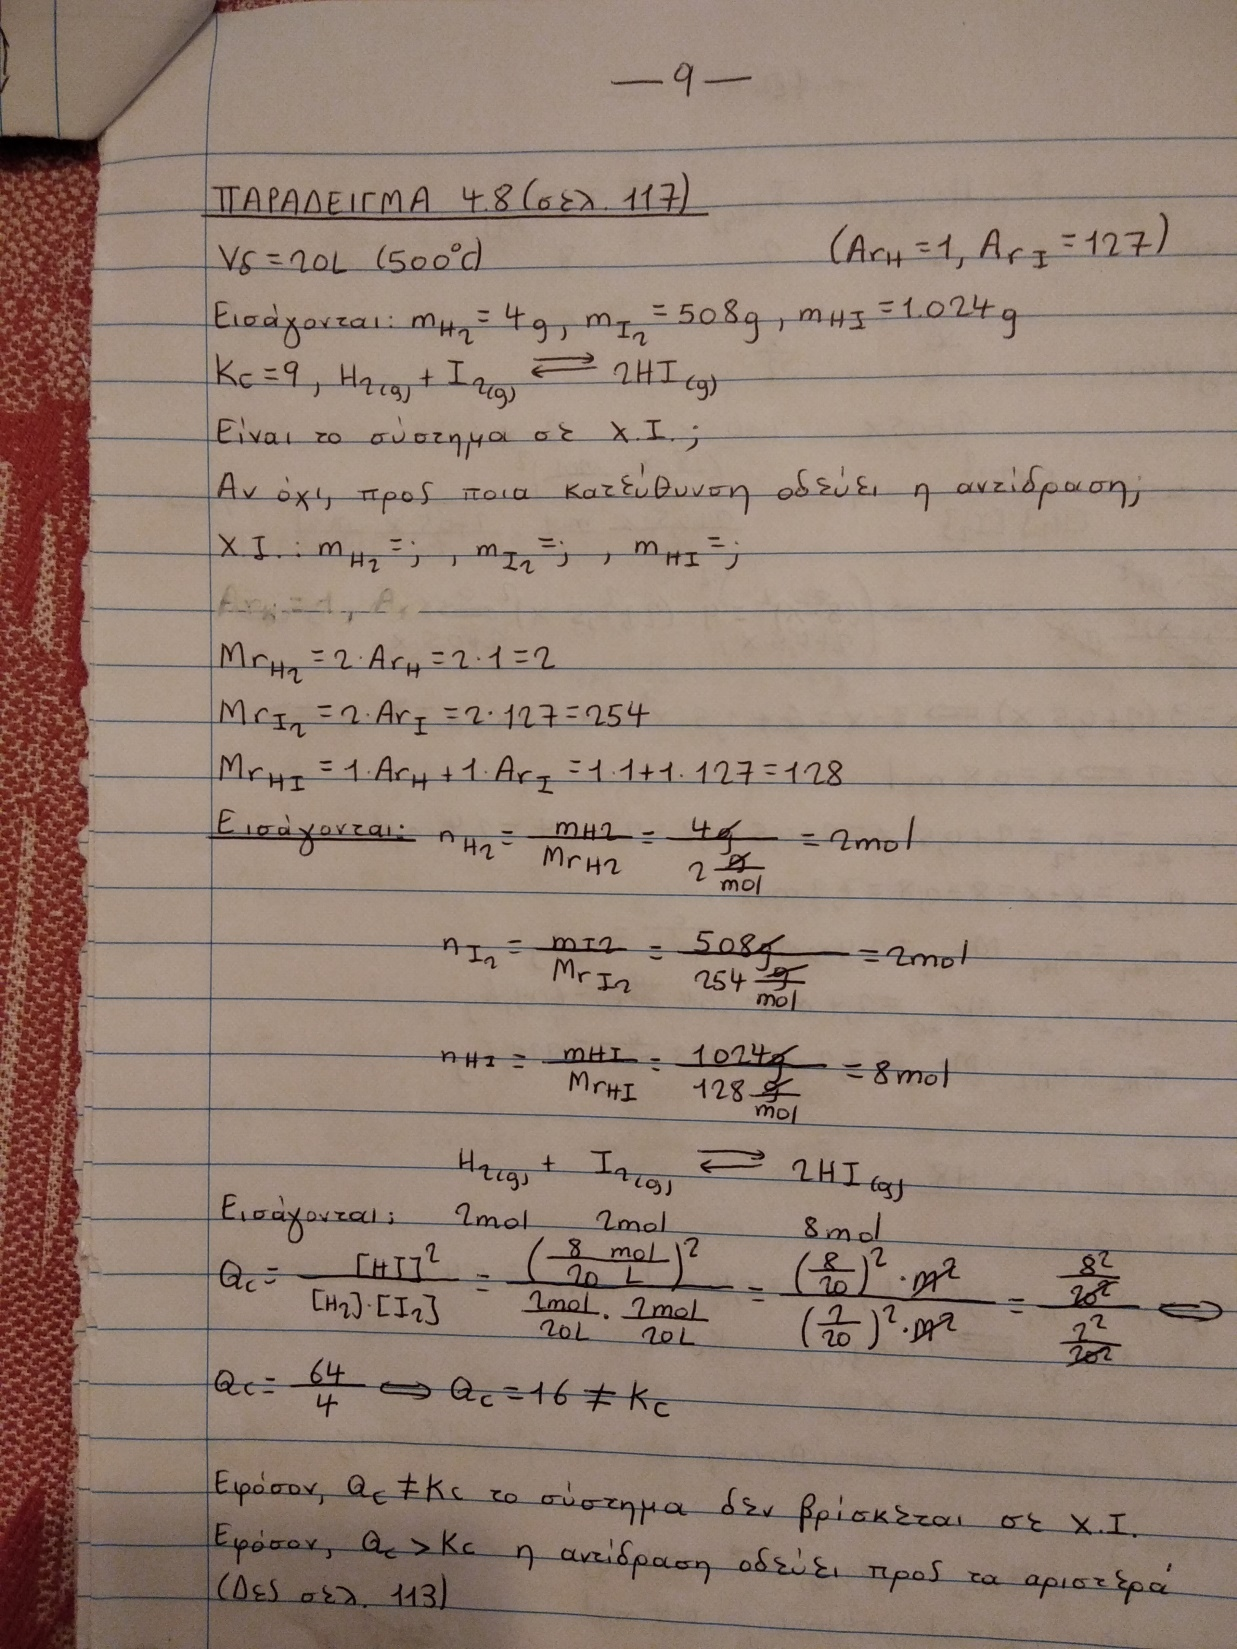 — 9 —
ΠΑΡΑΔΕΙΓΜΑ 4.8 (σελ. 117)
Vδ = 20L (500°C) (ArH = 1, ArI = 127)
Εισάγονται: mH2 = 4g, mI2 = 508g, mHI = 1.024g
Kc = 9, H2(g) + I2(g) ⇌ 2HI(g)
Είναι το σύστημα σε Χ.Ι.;
Αν όχι, προς ποια κατεύθυνση οδεύει η αντίδραση;
Χ.Ι.: mH2 = ;, mI2 = ;, mHI = ;
MrH2 = 2·ArH = 2·1 = 2
MrI2 = 2·ArI = 2·127 = 254
MrHI = 1·ArH + 1·ArI = 1·1 + 1·127 = 128
Εισάγονται: nH2 = mH2/MrH2 = 4g/(2 g/mol) = 2mol
nI2 = mI2/MrI2 = 508g/(254 g/mol) = 2mol
nHI = mHI/MrHI = 1024g/(128 g/mol) = 8mol
H2(g) + I2(g) ⇌ 2HI(g)
Εισάγονται: 2mol 2mol 8mol
Qc = [HI]²/([H2]·[I2]) = (8/20 mol/L)²/(2mol/20L · 2mol/20L) = ((8/20)²·M²)/((2/20)²·M²) = (8²/20²)/(2²/20²) ⇔
Qc = 64/4 ⇔ Qc = 16 ≠ Kc
Εφόσον, Qc ≠ Kc το σύστημα δεν βρίσκεται σε Χ.Ι.
Εφόσον, Qc > Kc η αντίδραση οδεύει προς τα αριστερά
(Δες σελ. 113)